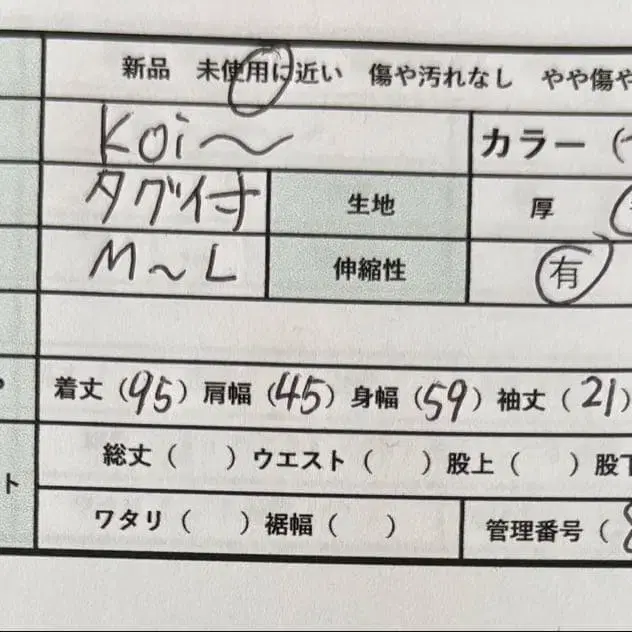 新品 未使用に近い 傷や汚れなし やや傷や
Koi〜 カラー（
タグ付 生地 厚
M〜L 伸縮性 有
着丈（95）肩幅（45）身幅（59）袖丈（21）
総丈（ ）ウエスト（ ）股上（ ）股下
ト
ワタリ（ ）裾幅（ ） 管理番号（